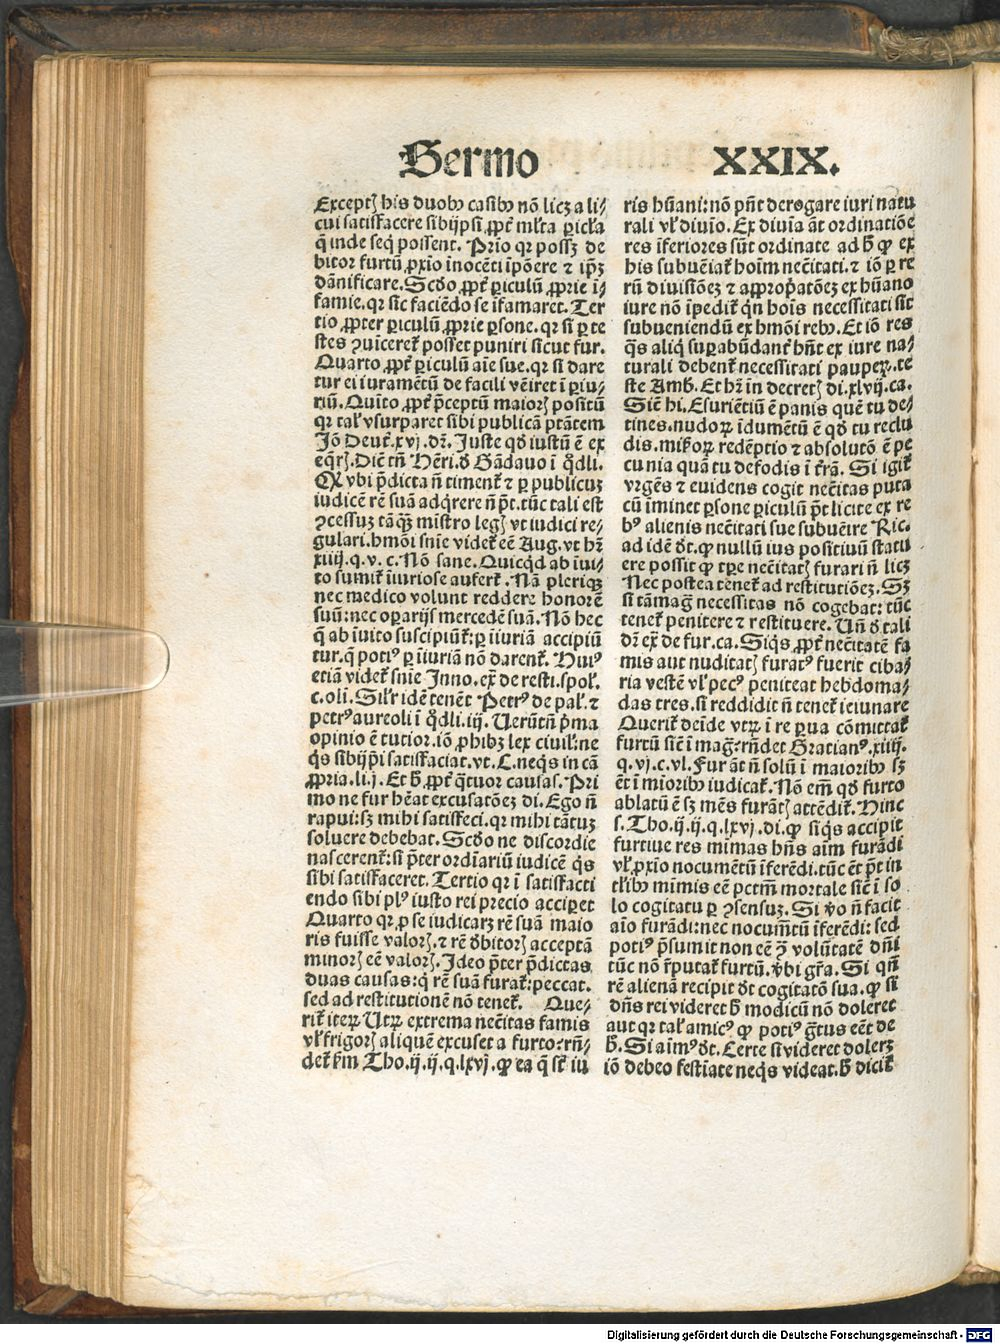 Sermo XXIX.
Exceptꝭ his duobꝰ casibꝰ nō licꝫ ali⸗
cui satisfacere sibijpsi ꝓpt̄ ml̓ta ꝑicl̓a
q̄ inde seq̄ possent. Prīo qꝛ possꝫ de
bitor furtū ꝓxīo īnocēti īpōere ⁊ ip̄ꝫ
dānificare. Scd̓o ꝓpt̄ ꝑiculū ꝓprie ī⸗
famie. qꝛ sic̄ faciēdo se īfamaret. Ter
tio ꝓpter ꝑiculū ꝓprie ꝑsone. qꝛ si ꝑ te
stes ꝯuiceret̄ posset puniri sicut fur.
Quarto ꝓpt̄ ꝑiculū aīe sue. qꝛ si dare
tur ei iuramētū de facili vēiret ī ꝑiu⸗
riū. Quīto ꝓpt̄ p̄ceptū maioꝝ positū
qꝛ tal̓ vsurparet sibi publicā ptātem
Jō Deut̄. xvj. dꝛ̄. Juste qd̓ iustū ē ex
eqr̄ꝭ. Dic̄ tn̄ Hēri. d̓ Gādauo ī q̊dli.
Q vbi p̄dicta n̄ timent̄ ⁊ ꝑ publicuꝫ
iudicē rē suā adq̄rere n̄ p̄t. tūc tali est
ꝯcessuꝫ tāꝙꝫ mīstro legꝭ vt iudici re⸗
gulari. hmōi snīe videt̄ eē Aug. vt hꝫ̄
xiiij. q. v. c. Nō sane. Quicqd̓ ab īui⸗
to sumit̄ īiuriose aufert̄. Nā pleriqꝫ
nec medico volunt reddere honorē
suū: nec oꝑarijs mercedē suā. Nō hec
q̄ ab īuito suscipiūt̄: ꝑ īiuriā accipiū
tur. q̄ potiꝰ ꝑ īiuriā nō darent̄. Huiꝰ
etiā videt̄ snīe Inno. ex̄ de resti. spol̓.
c. oli. Sil̓r idē tenēt Petrꝰ de pal̓. ⁊
petrꝰ aureoli ī q̊dli. iij. Uerūtn̄ p̓ma
opinio ē tutior. iō ꝓhibꝫ lex ciuil̓: ne
q̓s sibijp̄i satisfaciat. vt. C. neq̓s in cā
ꝓpria. li. j. Et h̓ ꝓpt̄ q̄tuor causas. Pri
mo ne fur hēat excusatōeꝫ di. Ego n̄
rapui: sꝫ mihi satisfeci. qꝛ mihi tātuꝫ
soluere debebat. Scd̓o ne discordie
nascerent̄: si p̄ter ordīariū iudicē q̓s
sibi satisfaceret. Tertio qꝛ ī satisfacti
endo sibi plꝰ iusto rei precio acciꝑet
Quarto qꝛ ꝑ se iudicarꝫ rē suā maio
ris fuisse valorꝭ. ⁊ rē d̓bitorꝭ acceptā
minorꝭ eē valorꝭ. Jdeo p̄ter p̄dictas
duas causas: q̓ rē suā furat̄: peccat.
sed ad restitutionē nō tenet̄. Que⸗
rit̄ iteꝝ Utꝝ extrema nec̄itas famis
vl̓ frigorꝭ aliquē excuset a furto: rn̄⸗
det̄ scd̓m Tho. ij. ij. q. lxvj. ꝙ ea q̄ st̄ iu
ris hūani: nō pn̄t derogare iuri natu
rali vl̓ diuīo. Ex diuīa āt ordinatiōe
res īferiores sūt ordinate ad h̓ ꝙ ex
his subueniat̄ hoīm nec̄itati. ⁊ iō ꝑ re
rū diuisiōeꝫ ⁊ app̓op̓atōeꝫ ex hūano
iure nō īpedit̄ q̓n hoīs necessitati sit
subueniendū ex hmōi rebꝰ. Et iō res
q̄s aliq̓ suꝑabūdant̄ hn̄t ex iure na⸗
turali debent̄ necessitati pauꝑꝝ. te
ste Amb. Et hꝫ̄ in decretꝭ di. xlvij. ca.
Sic̄ hi. Esuriētiū ē panis quē tu de⸗
tines. nudoꝝ īdumētū ē qd̓ tu reclu
dis. mis̄oꝝ redēptio ⁊ absolutō ē pe
cunia quā tu defodis ī t̄rā. Si igit̄
vrgēs ⁊ euidens cogit nec̄itas puta
cū īminet ꝑsone ꝑiculū p̄t licite ex re
bꝰ alienis nec̄itati sue subuēire Ric.
ad idē d̓t. ꝙ nullū ius positiuū statu
ere possit ꝙ tꝑe nec̄itatꝭ furari n̄ licꝫ
Nec postea tenet̄ ad restitutiōeꝫ. Sꝫ
si tāmag̃ necessitas nō cogebat: tūc
tenet̄ penitere ⁊ restituere. Un̄ d̓ tali
dꝛ̄ ex̄ de fur. ca. Siq̓s ꝓpt̄ nec̄itatē fa
mis aut nuditatꝭ furatꝰ fuerit ciba⸗
ria vestē vl̓ pecꝰ peniteat hebdoma⸗
das tres. si reddidit n̄ tenet̄ ieiunare
Querit̄ deīde vtꝝ ī re ꝑua cōmittat̄
furtū sic̄ ī mag̃: rn̄det Gratianꝰ. xiiij.
q. vj. c. vl. Fur āt n̄ solū ī maioribꝰ sꝫ
ēt ī mioribꝰ iudicat̄. Nō em̄ qd̓ furto
ablatū ē sꝫ mēs furātꝭ attēdit̄. Hinc
s. Tho. ij. ij. q. lxvj. di. ꝙ siq̓s accipit
furtiue res mimas hn̄s aīm furādi
vl̓ ꝓxīo nocumētū īferēdi. tūc ēt p̄t in
tl̓ibꝰ mīmis eē pctm̄ mortale sic̄ ī so
lo cogitatu ꝑ ꝯsensuꝫ. Si v̓o n̄ facit
aīo furādi: nec nocum̄tū īferēdi: sed
potiꝰ p̄sumit non eē ꝯ̄ volūtatē dn̄i
tūc nō r̄putat̄ furtū. v̓bi gr̄a. Si qn̄
rē alienā recipit d̓t cogitatō sua. ꝙ si
dn̄s rei videret h̓ modicū nō doleret
aut qꝛ tal̓ amicꝰ ꝙ potiꝰ g̃tus eēt de
h̓. Si aīmꝰ d̓t. Certe si videret dolerꝫ
iō debeo festīate neq̓s videat. h̓ dicit̄
Digitalisierung gefördert durch die Deutsche Forschungsgemeinschaft - DFG